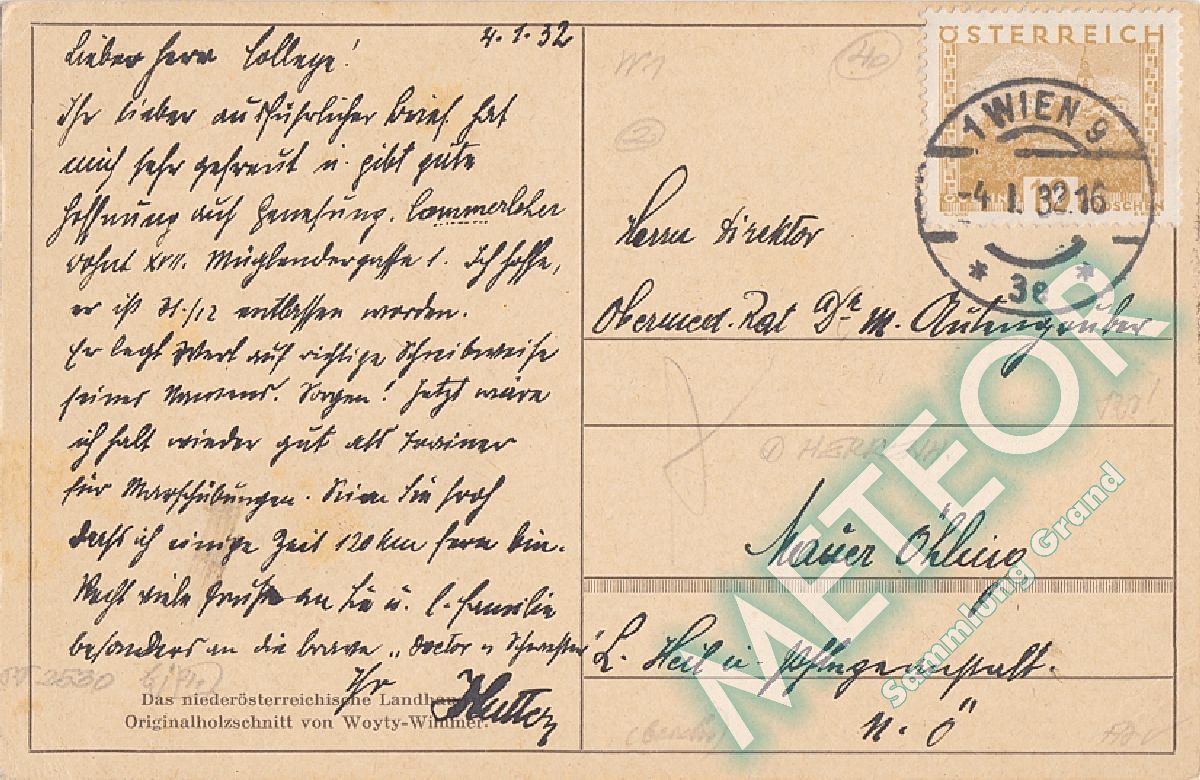 4.1.32
Lieber Herr College!
Ihr lieber ausführlicher Brief hat
mich sehr gefreut u. gibt gute
Hoffnung auf Genesung. Cammerloher
wohnt XVII. Müglendergasse 1. Ich hoffe,
er ist 31./12 entlassen worden.
Er legt Wert auf richtige Schreibweise
seines Namens. Sorgen! Jetzt wäre
ich halt wieder gut als Trainer
für Marschübungen. Seien Sie froh
dass ich einige Zeit 120 km fern bin.
Recht viele Grüße an Sie u. l. Familie
besonders an die brave „Doctor u Schwester“
Ihr
Das niederösterreichische
Originalholzschnitt von Woyty-Wimmer.
ÖSTERREICH
10
GROSCHEN
1 WIEN 9
-4. I. 32 16
* 3e *
Herrn Direktor
Obermed. Rat Dr. M. Autengruber
Mauer Öhling
L. Heil u. Pflegeanstalt.
N. Ö
W.1
40
2
HERRENH.
2530
METEOR
Sammlung Grand